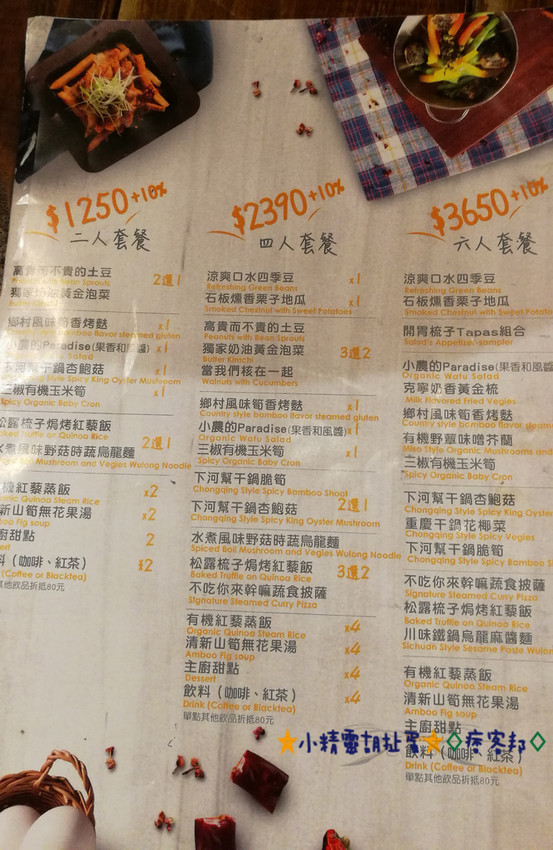 $1250+10%
二人套餐
高貴而不貴的土豆
Peanuts with Bean Sprouts
2選1
獨家奶油黃金泡菜
鄉村風味筍香烤麩 x1
bamboo flavor steamed gluten
小農的Paradise(果香和風醬) x1
Salad
下河幫干鍋杏鮑菇 x1
Style Spicy King Oyster Mushroom
三椒有機玉米筍 x1
Spicy Organic Baby Cron
松露梳子焗烤紅藜飯
Baked Truffle on Quinoa Rice
2選1
水煮風味野菇時蔬烏龍麵
Mushroom and Vegies Wulong Noodle
有機紅藜蒸飯 x2
Organic Quinoa Steam Rice
清新山筍無花果湯 x2
Amboo Fig soup
主廚甜點 2
飲料（咖啡、紅茶） x2
Drink (Coffee or Blacktea)
其他飲品折抵80元
$2390+10%
四人套餐
涼爽口水四季豆 x1
Refreshing Green Beans
石板燻香栗子地瓜 x1
Smoked Chestnut with Sweet Potatoes
高貴而不貴的土豆
Peanuts with Bean Sprouts
獨家奶油黃金泡菜 3選2
Butter Kimchi
當我們核在一起
Walnuts with Cucumbers
鄉村風味筍香烤麩 x1
Country style bamboo flavor steamed gluten
小農的Paradise(果香和風醬) x1
Organic Wafu Salad
三椒有機玉米筍 x1
Spicy Organic Baby Cron
下河幫干鍋脆筍
Chongqing Style Spicy Bamboo Shoot
2選1
下河幫干鍋杏鮑菇
Chongqing Style Spicy King Oyster Mushroom
水煮風味野菇時蔬烏龍麵
Spiced Boil Mushroom and Vegies Wulong Noodle
松露梳子焗烤紅藜飯 3選2
Baked Truffle on Quinoa Rice
不吃你來幹嘛蔬食披薩
Signature Steamed Curry Pizza
有機紅藜蒸飯 x4
Organic Quinoa Steam Rice
清新山筍無花果湯 x4
Amboo Fig soup
主廚甜點 x4
Dessert
飲料（咖啡、紅茶） x4
Drink (Coffee or Blacktea)
單點其他飲品折抵80元
$3650+10%
六人套餐
涼爽口水四季豆
Refreshing Green Beans
石板燻香栗子地瓜
Smoked Chestnut with Sweet Potatoes
開胃梳子Tapas組合
Salad's Appetizer-sampler
小農的Paradise(果香和風
Organic Wafu Salad
克寧奶香黃金梳
Milk Flavored Fried Vegies
鄉村風味筍香烤麩
Country style bamboo flavor steam
有機野蕈味噌芥蘭
Miso Style Organic Mushrooms and
三椒有機玉米筍
Spicy Organic Baby Cron
下河幫干鍋杏鮑菇
Chongqing Style Spicy King Oyster
重慶干鍋花椰菜
Chongqing Style Spicy
下河幫干鍋脆筍
Chongqing Style Spicy Bamboo S
不吃你來幹嘛蔬食披薩
Signature Steamed Curry Pizza
松露梳子焗烤紅藜飯
Baked Truffle on Quinoa Rice
川味鐵鍋烏龍麻醬麵
Sichuan Style Sesame Paste Wulon
有機紅藜蒸飯
Organic Quinoa Steam Rice
清新山筍無花果湯
Amboo Fig soup
主廚甜點
飲料（咖啡、紅茶）
Drink (Coffee or Blacktea)
單點其他飲品折抵80元
★小精靈胡扯蛋★◇痞客邦◇